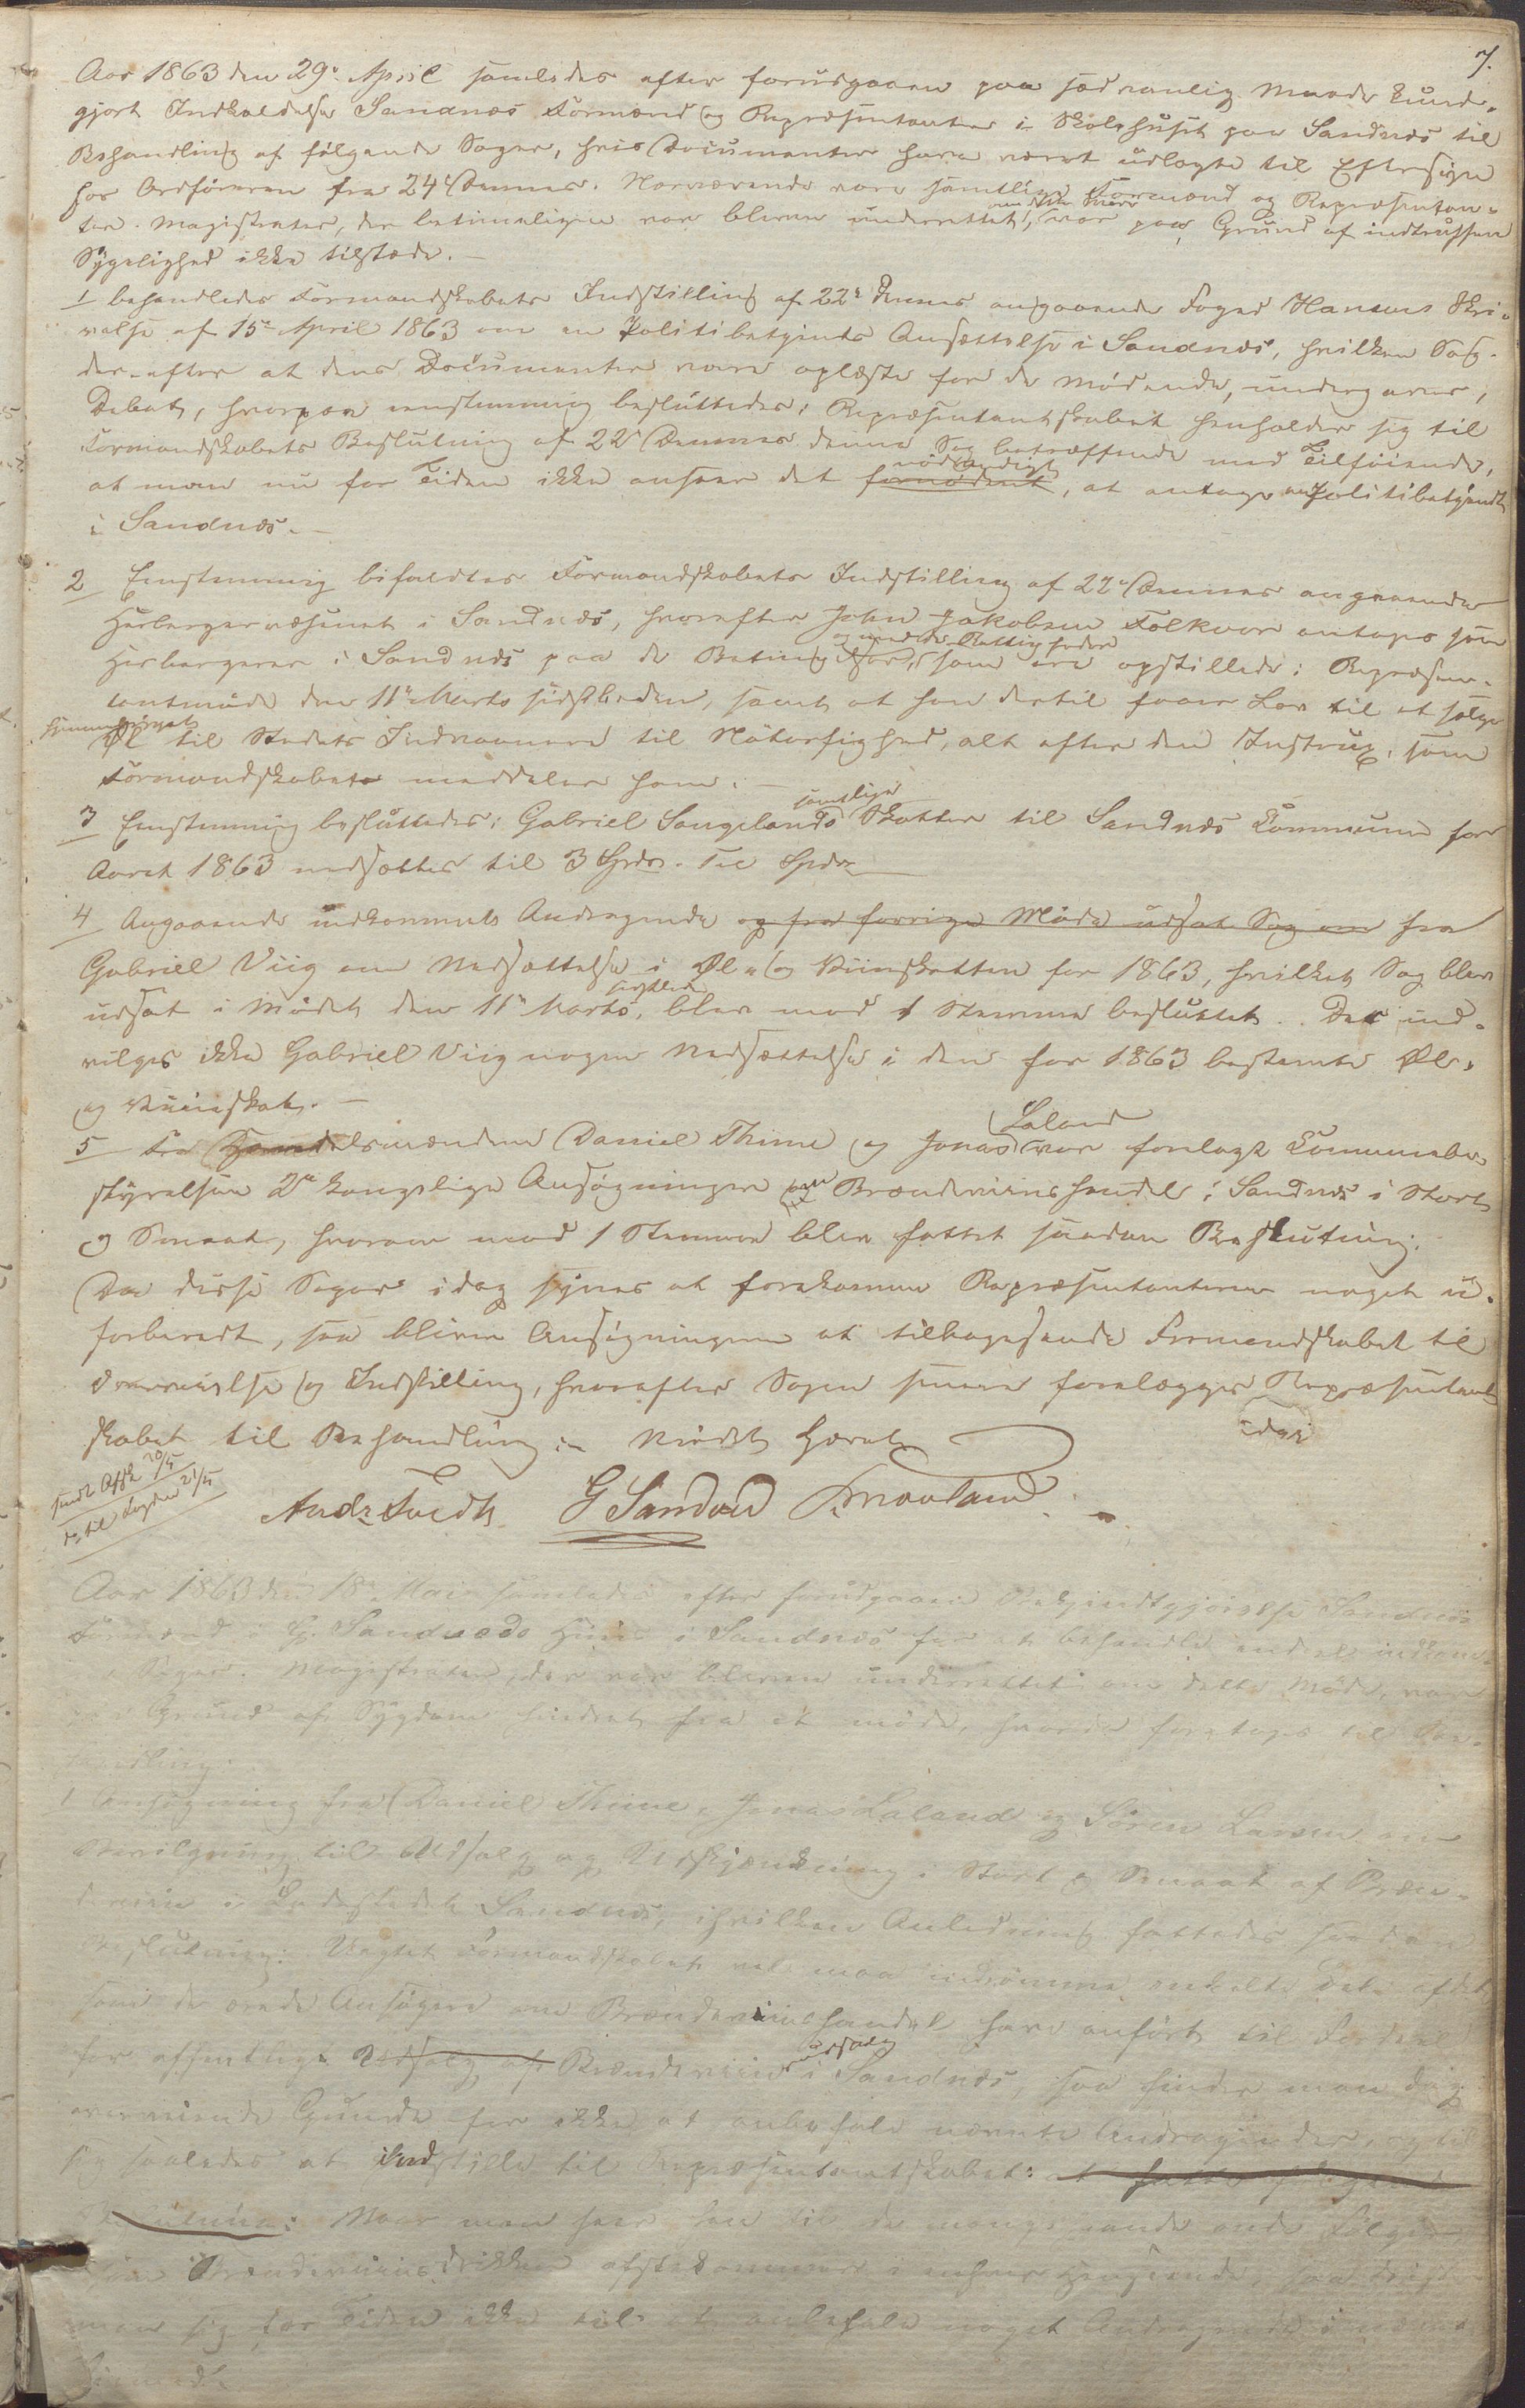 7.
Aar 1863 den 29de April samledes efter forudgaaen paa sædvanlig Maade kund-
gjort Indkaldelse Sandnæs Formænd og Repræsentanter i Skolehuset paa Sandnæs til
Behandling af følgende Sager, hvis Documenter have været udlagte til Eftersyn
hos Ordføreren fra 24de Dennes. Nærværende vare samtlige Formænd og Repræsentan-
ter. Magistraten, der betimeligen var bleven underrettet, om dette Møde var paa Grund af indtruffen
Sygelighed ikke tilstede.
1 behandledes Formandskabets Indstilling af 22de dennes angaaende Foged Hansens Skri-
velse af 15de April 1863 om en Politibetjents Ansættelse i Sandnæs, hvilken Sag-
der efter at dens Documenter vare oplæste for de mødende, undergaves
Debat, hvorpaa eenstemmig besluttedes: Repræsentantskabet henholder sig til
Formandskabets Beslutning af 22de Dennes denne Sag betræffende med Tilføiende,
at man nu for Tiden ikke anseer det fornødent nødvendigt, at antage en Politibetjent
i Sandnæs.
2 Eenstemmig bifaldtes Formandskabets Indstilling af 22de Dennes angaaende
Herbergervæsenet i Sandnæs, hvorefter John Jakobsen Folkvor antages som
Herbergerer i Sandnæs paa de Betingelser, og med de Rettigheder som ere opstillede i Repræsen-
tantmøde den 11te Marts sidstleden, samt at han dertil faaer Lov til at sælge
hjemmebrygget Øl til Stedets Indvaanere til Nøtorfighed, alt efter den Instrux, som
Formandskabet meddeler ham.
3 Eenstemmig besluttedes: Gabriel Sangelands samtlige Skatter til Sandnæs Kommune for
Aaret 1863 nedsættes til 3 Spdr. Tre Spdr
4 Angaaende indkommet Andragende og fra forrige Møde udsat Sag om fra
Gabriel Viig om Nedsættelse i Øl- og Viinskatten for 1863, hvilket Sag blev
udsat i Mødet den 11te Marts sidstleden, blev mod 1 Stemme besluttet. Der ind-
vilges ikke Gabriel Viig nogen Nedsættelse i den for 1863 bestemte Øl-
og Viinskat.
5 Fra Handelsmændene Daniel Thime og Jonas Laland var forelagt Kommunebe-
styrelsen 2de kongelige Ansøgninger om Brændeviinshandel i Sandnæs i Stort
og Smaat, hvorom mod 1 Stemme blev fattet saadan Beslutning:
Da disse Sager idag synes at forekomme Repræsentanterne noget u-
forberedt, saa bliver Ansøgningerne at tilbagesende Formandskabet til
Overveielse og Indstilling, hvorefter Sagen senere forelægges Repræsentant
skabet til Behandling. Mødet hævet
sendt Afsk 20/5
do til Fogden 21/5
Andr Tvedt G Sandved
Aar 1863 den 18de Mai samledes efter forudgaaen Bekjendtgjørelse Sandnæs
Formænd i G. Sandveds Huus i Sandnæs for at behandle endeel indkom-
ne Sager. Magistraten, der var bleven underrettet om dette Møde, var
paa Grund af Sygdom hindret fra at møde, hvorda foretages til Be-
handling:
1 Ansøgning fra Daniel Thime, Jonas Laland og Søren Larsen om
Bevilgning til Udsalg og Udskjænkning i Stort og Smaat af Bræn-
deviin i Ladestedet Sandnæs, i hvilken Anledning fattedes saadan
Beslutning: Uagtet Formandskabet vel maa indrømme enkelte Dele af det
som de ærede Ansøgere om Brændeviinshandel have anført til Fordeel
for offentlige Udsalg af Brændeviins udsalg i Sandnæs, saa finder man dog
overveiende Grunde for ikke at anbefale nævnte Andragender, og til
sig saaledes at indstille til Repræsentantskabet: at fatte følgende
Beslutning: Naar man seer hen til de mange onde Følger,
som Brændeviinsdrikken afstedkommer i enhver Henseende, saa
man sig for Tiden ikke til at anbefale noget Andragende i nævnte